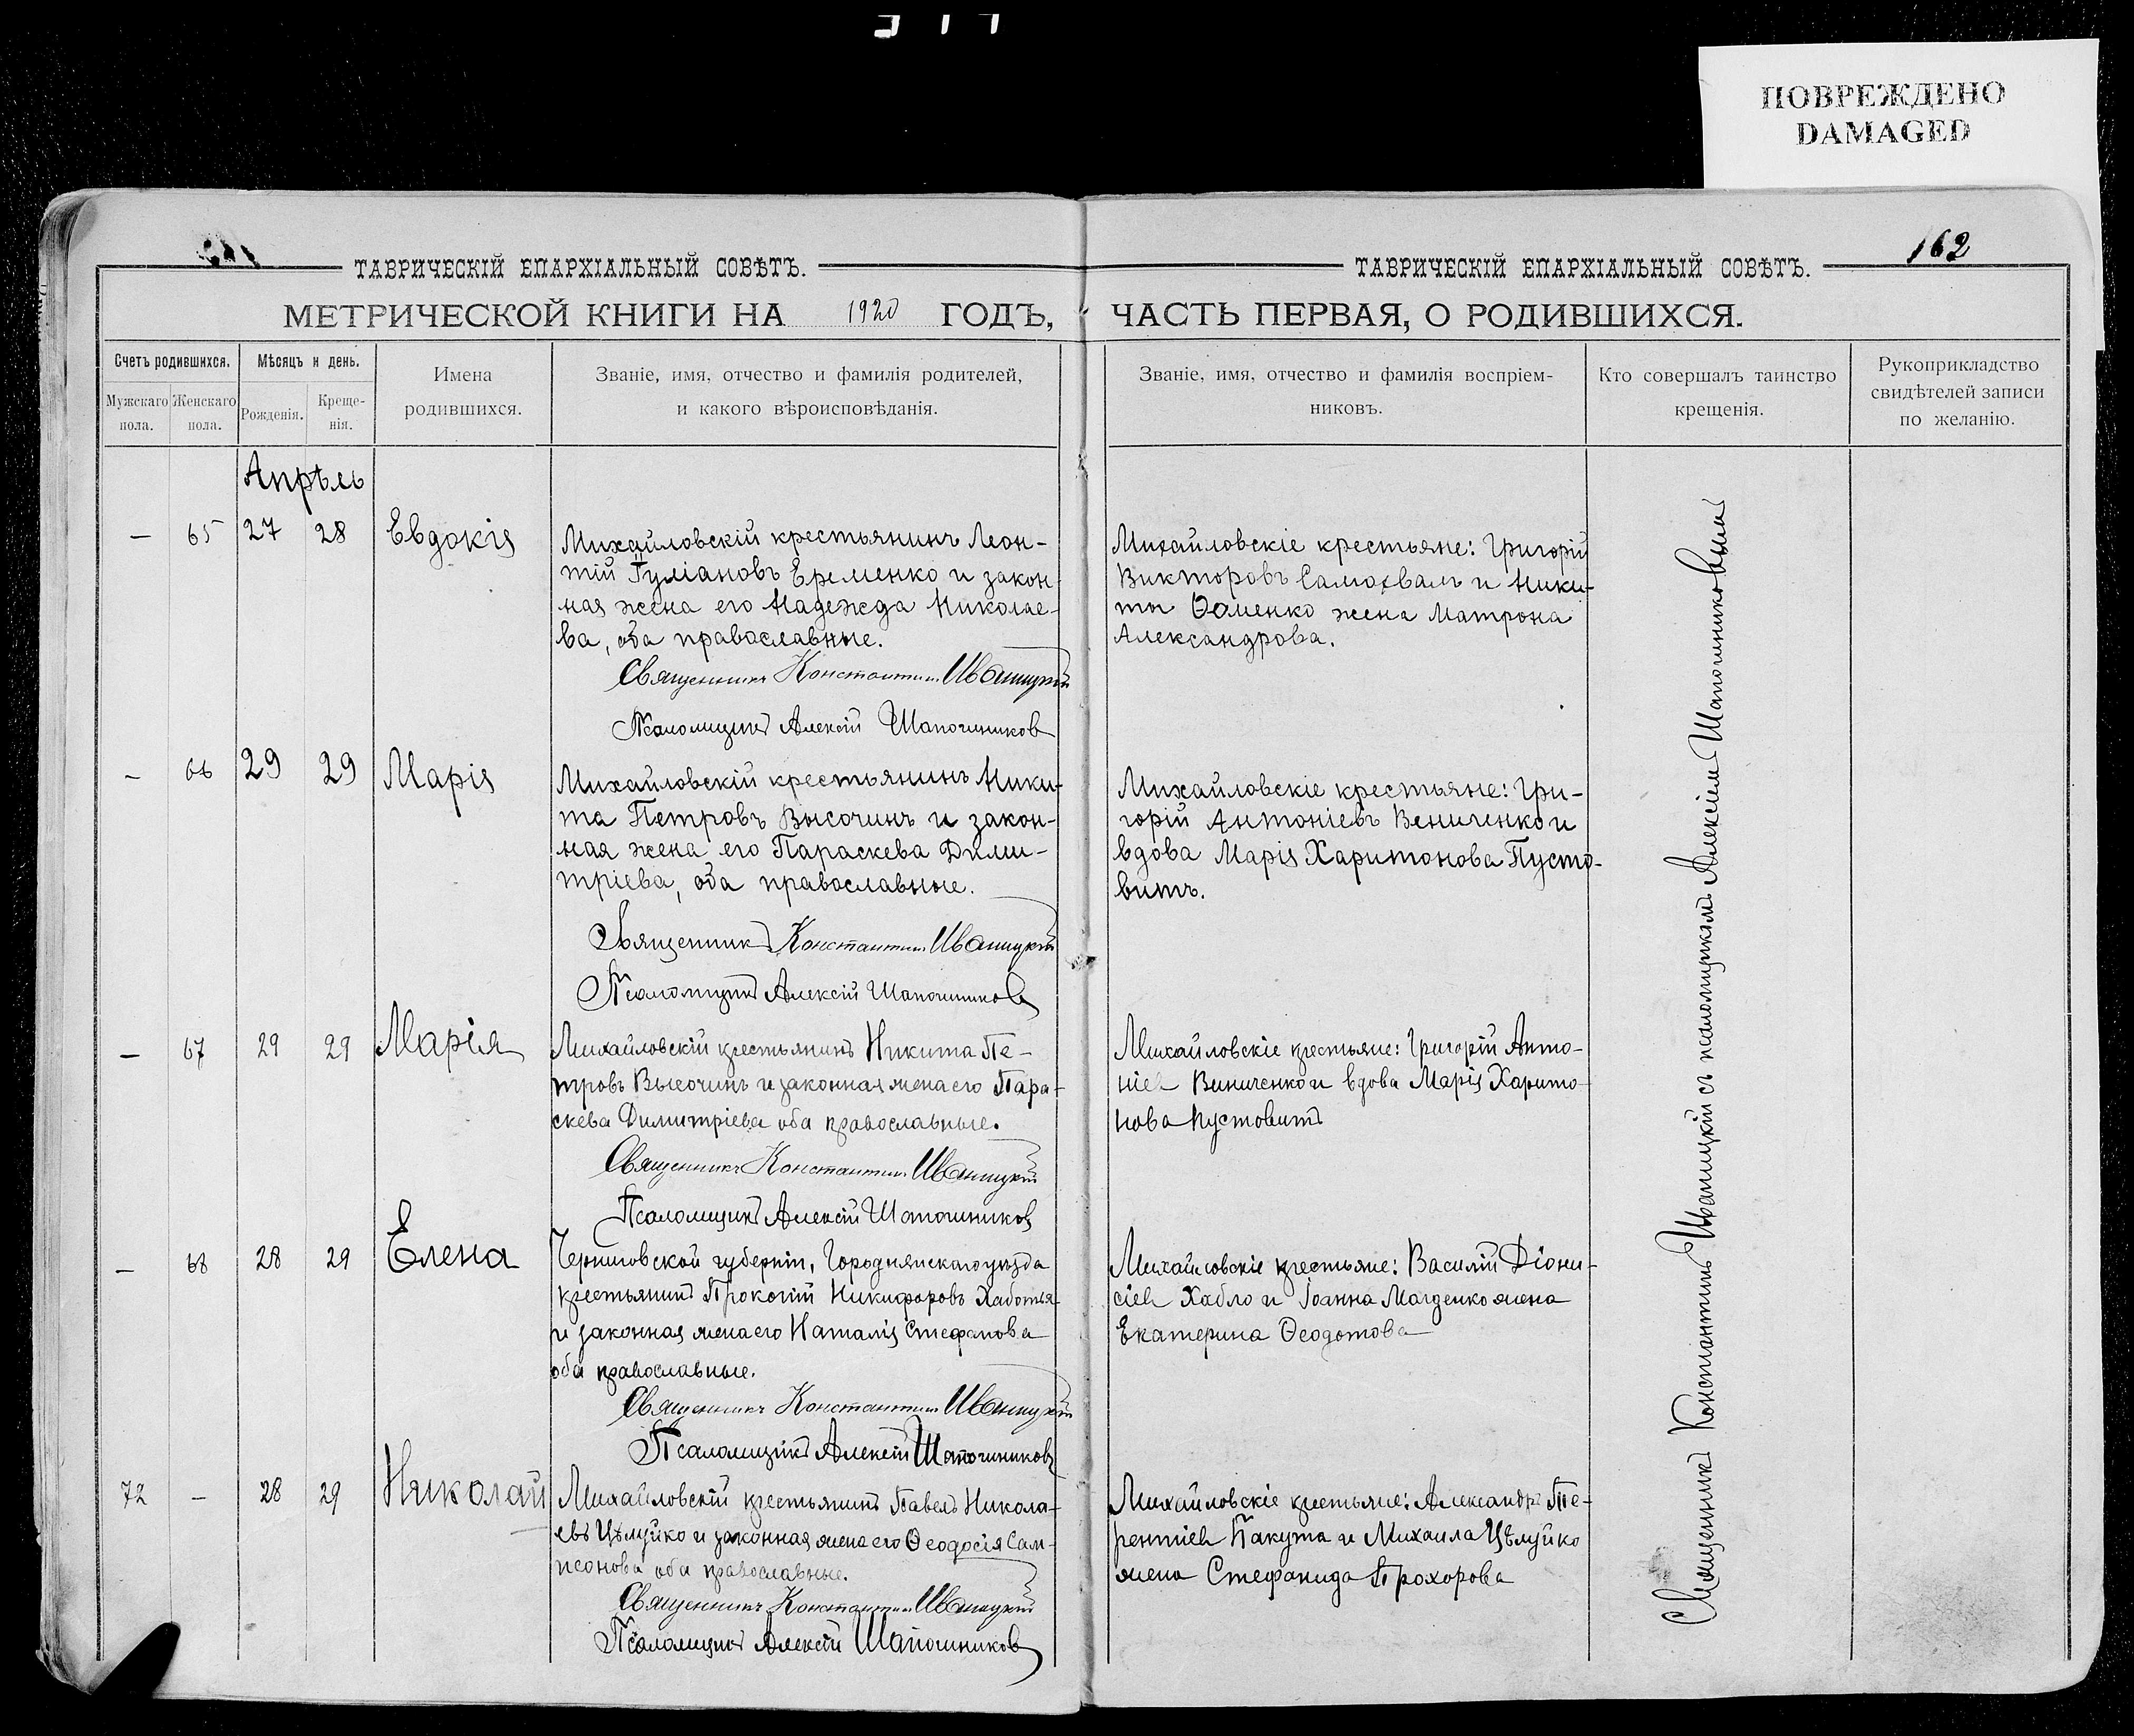 ПОВРЕЖДЕНО
DAMAGED
162
ТАВРИЧЕСКІЙ ЕПАРХІАЛЬНЫЙ СОВѢТЪ.
ТАВРИЧЕСКІЙ ЕПАРХІАЛЬНЫЙ СОВѢТЪ.
МЕТРИЧЕСКОЙ КНИГИ НА 1920 ГОДЪ,
ЧАСТЬ ПЕРВАЯ, О РОДИВШИХСЯ.
Счетъ родившихся.
Мужскаго пола.
Женскаго пола.
Мѣсяцъ и день.
Рожденія.
Креще-
нія.
Имена
родившихся.
Званіе, имя, отчество и фамилія родителей,
и какого вѣроисповѣданія.
Званіе, имя, отчество и фамилія воспріем-
никовъ.
Кто совершалъ таинство
крещенія.
Рукоприкладство
свидѣтелей записи
по желанію.
Апрѣль
— 65 27 28 Евдокія
Михайловскій крестьянинъ Леон-
тій Гуліановъ Еременко и закон-
ная жена его Надежда Николае-
ва, оба православные.
Священникъ Константинъ Иваницкій
Псаломщикъ Алексій Шапошников
Михайловскіе крестьяне: Григорій
Викторовъ Самохвалъ и Ники-
ты Ѳоменко жена Матрона
Александрова.
— 66 29 29 Марія
Михайловскій крестьянинъ Ники-
та Петровъ Высочинъ и закон-
ная жена его Параскева Дими-
тріева, оба православные.
Священникъ Константинъ Иваницкій
Псаломщикъ Алексій Шапошников
Михайловскіе крестьяне: Гри-
горій Антоніевъ Вениченко и
вдова Марія Харитонова Пусто-
витъ.
— 67 29 29 Марія
Михайловскій крестьянинъ Никита Пе-
тровъ Высочинъ и законная жена его Пара-
скева Димитріева оба православные.
Священникъ Константинъ Иваницкій
Псаломщикъ Алексій Шапошников
Михайловскіе крестьяне: Григорій Анто-
ніев Виниченко и вдова Марія Харито-
нова Пустовитъ
— 68 28 29 Елена
Черниговской губерніи, Городнянскаго уѣзда
крестьянинъ Прокопій Никифоровъ
и законная жена его Наталія Стефанова
оба православные.
Священникъ Константинъ Иваницкій
Псаломщикъ Алексій Шапошников
Михайловскіе крестьяне: Василій Діони-
сіев Хабло и Іоанна Магденко жена
Екатерина Ѳеодотова
72 — 28 29 Николай
Михайловскій крестьянинъ Павелъ Никола-
евъ Цѣлуйко и законная жена его Ѳеодосія Сам-
псонова оба православные.
Священникъ Константинъ Иваницкій
Псаломщикъ Алексій Шапошников
Михайловскіе крестьяне: Александръ Те-
рентіев Какута и Михаила Цѣлуйко
жена Стефанида Прохорова
Священникъ Константинъ Иваницкій съ псаломщикомъ Алексіемъ Шапошниковым